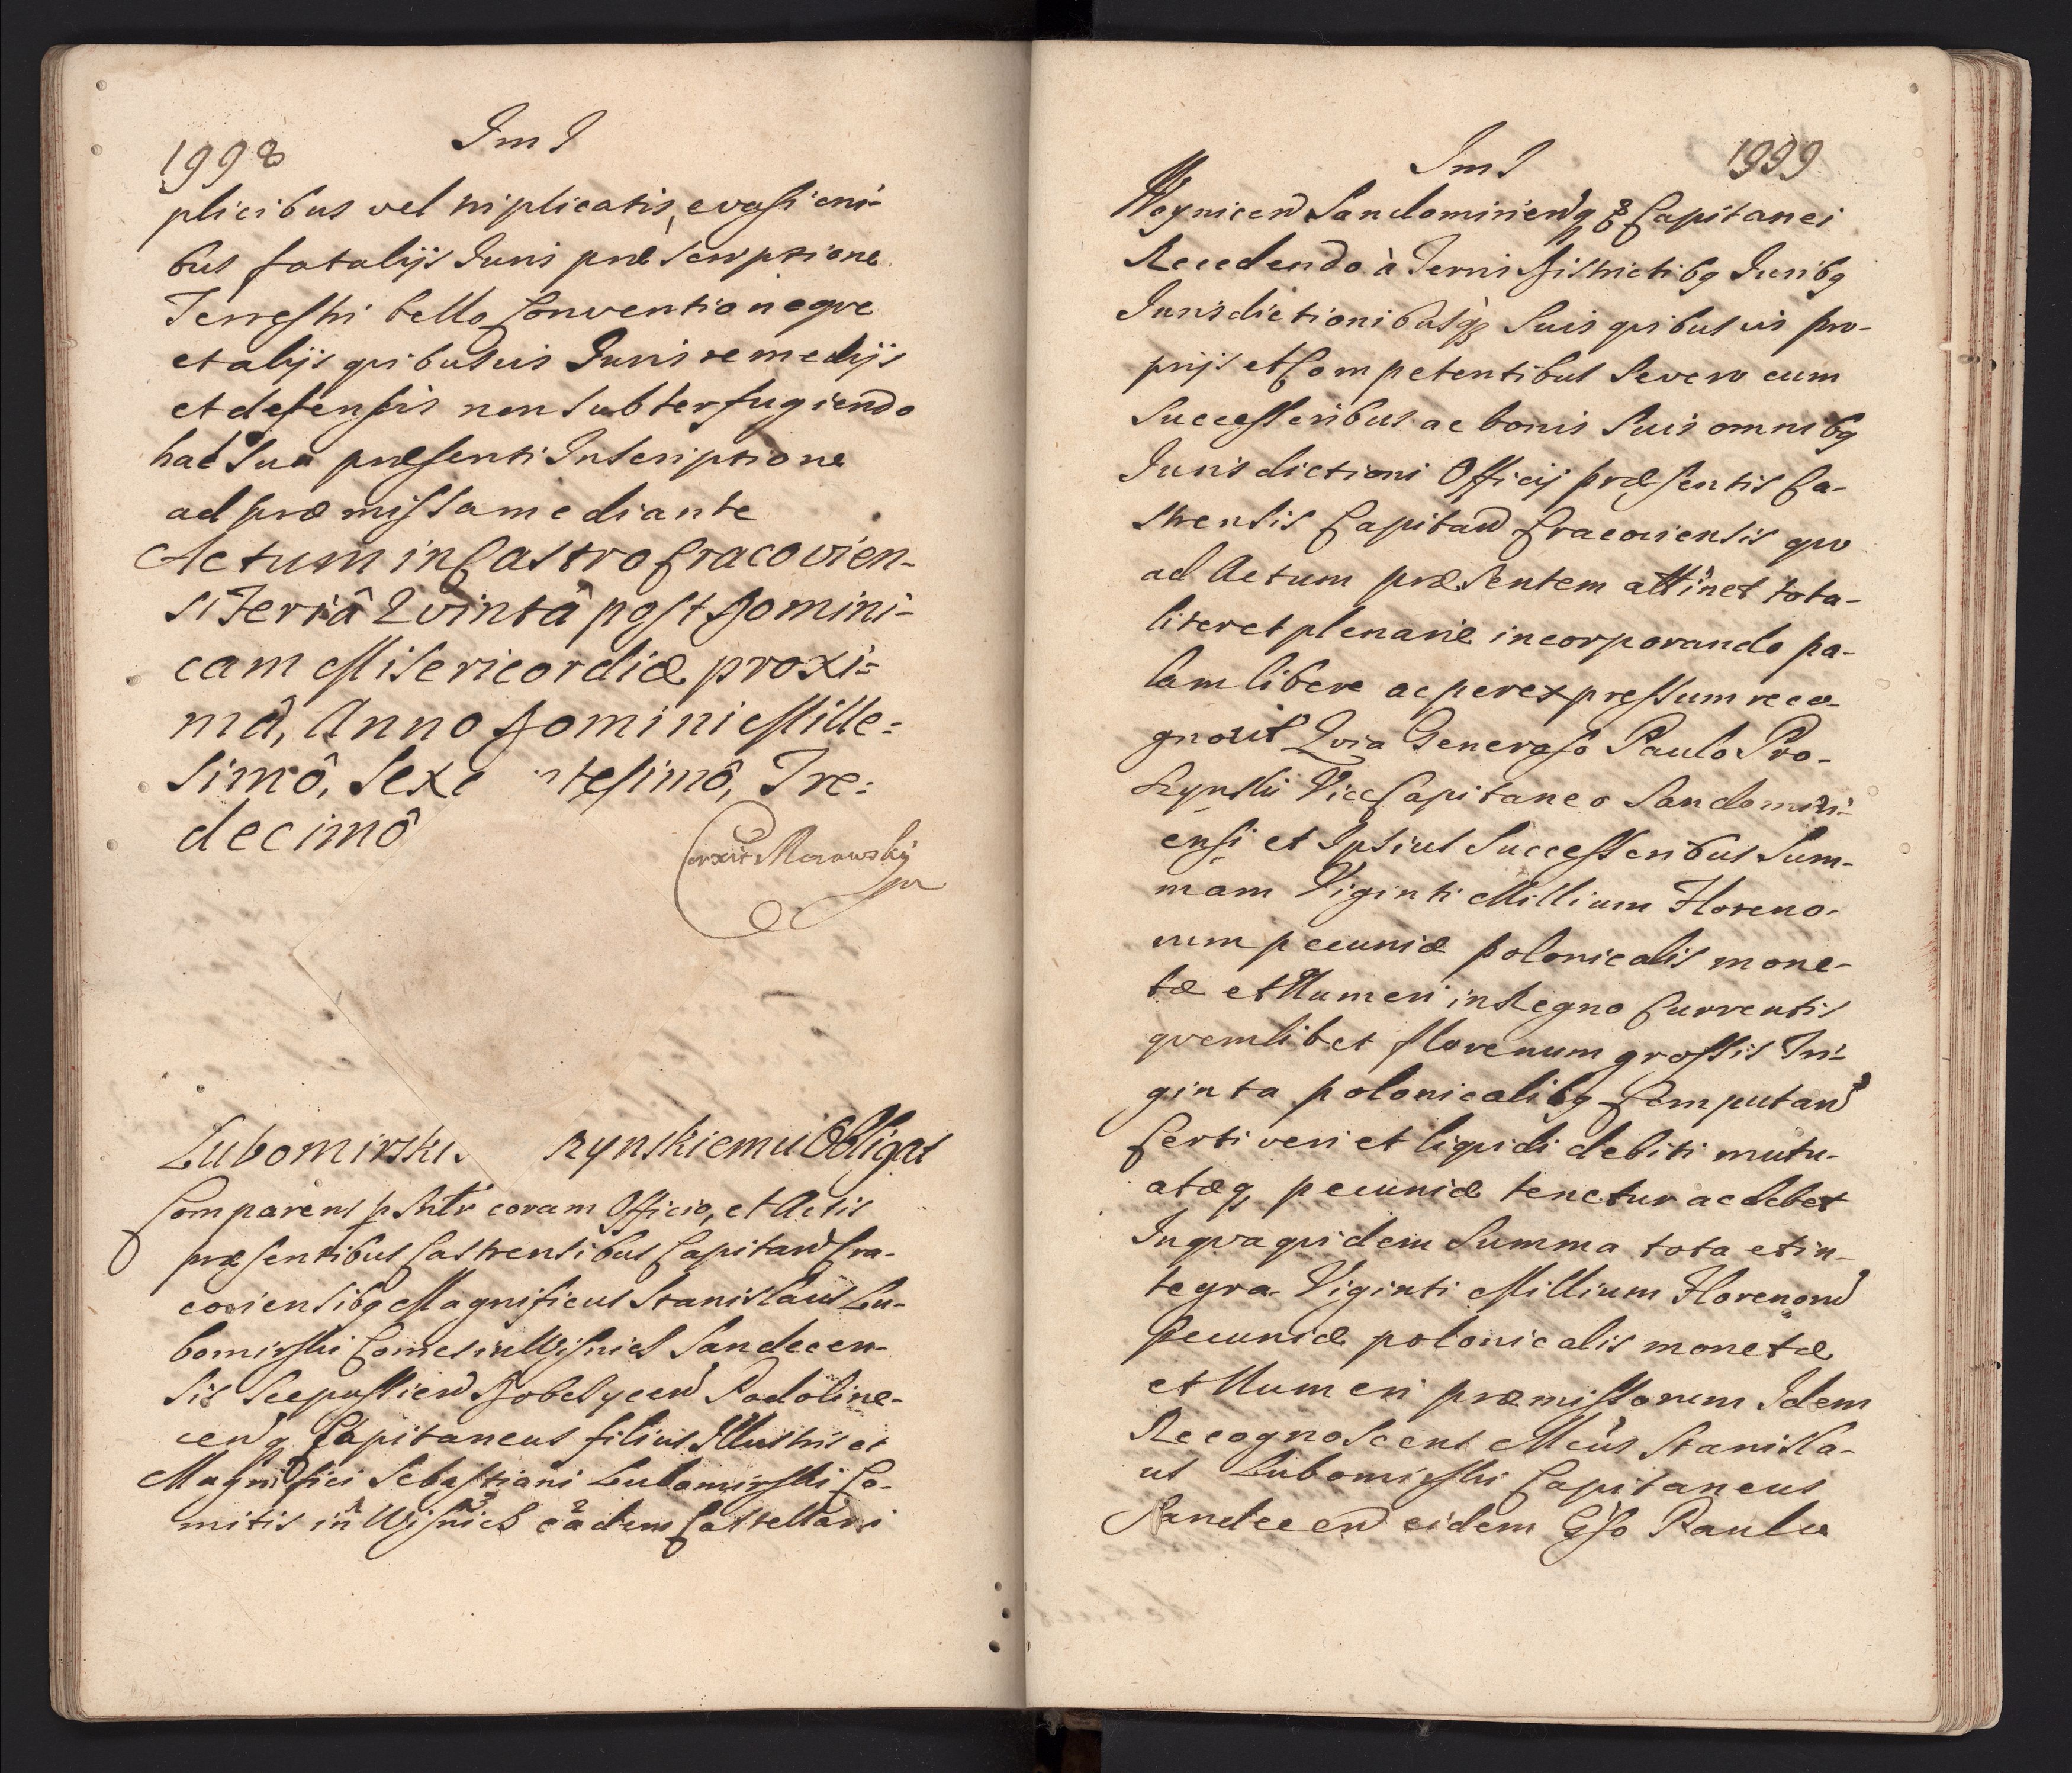 1998
Im I
plicibus vel triplicatis, evasioni-
bus fatalijs Juris præscriptione
Terrestri bello Conventioneqve
et alijs qvibusuis Juris remedijs
et defensis non Subterfugiendo
hac Sua præsenti Inscriptione
ad præmissa mediante
Actum in Castro Cracovien-
si Feriâ Qvintâ post Domini-
cam Misericordiæ proxi-
mâ, Anno Domini Mille-
simô, Sexc ntesimô, Tre-
decimô
Corxit Morawsky
Lubomirski rynskiemu Obligat
Comparens psntr coram Officio, et Actis
præsentibus Castrensibus Capitan Cra-
coviensibq Magnificus Stanislaus Lu-
bomirski Comes in Wisnicz Sandecen-
sis Scepussien Dobczycen Podoline-
cenq Capitaneus filius Illustris et
Magnifici Sebastiani Lubomirski Co-
mitis in Wisnicz eadem Castellani
Im I
1999
Woynicen Sandomirienq & Capitanei
Recedendo à Terris Districtibq Juribq
Jurisdictionibusq Suis qvibusuis pro-
prijs et Competentibus Se vero cum
Successoribus ac bonis Suis omnibq
Jurisdictioni Officij præsentis Ca-
strensis Capitan Cracoviensis qvo
ad Actum præsentem attinet tota-
liter et plenarie incorporando pa-
lam libere ac per expressum reco-
gnovit Qvia Generoso Paulo Pro-
szynski ViceCapitaneo Sandomiri-
ensi et Ipsius Successoribus Sum-
mam Viginti Millium Floreno-
rum pecuniæ polonicalis mone-
tæ et Numeri in Regno Currentis
qvemlibet florenum grossis Tri-
ginta polonicalibq Computan
Certi veri et liqvidi debiti mutu-
atæq pecuniæ tenetur ac debet
In qva qvidem Summa tota et in-
tegra Viginti Millium Florenoru
Pecuniæ polonicalis monetæ
et Numeri præmissorum Idem
Recognoscens Mcus Stanisla-
us Lubomirski Capitaneus
Sandecen eidem Gso Paulo